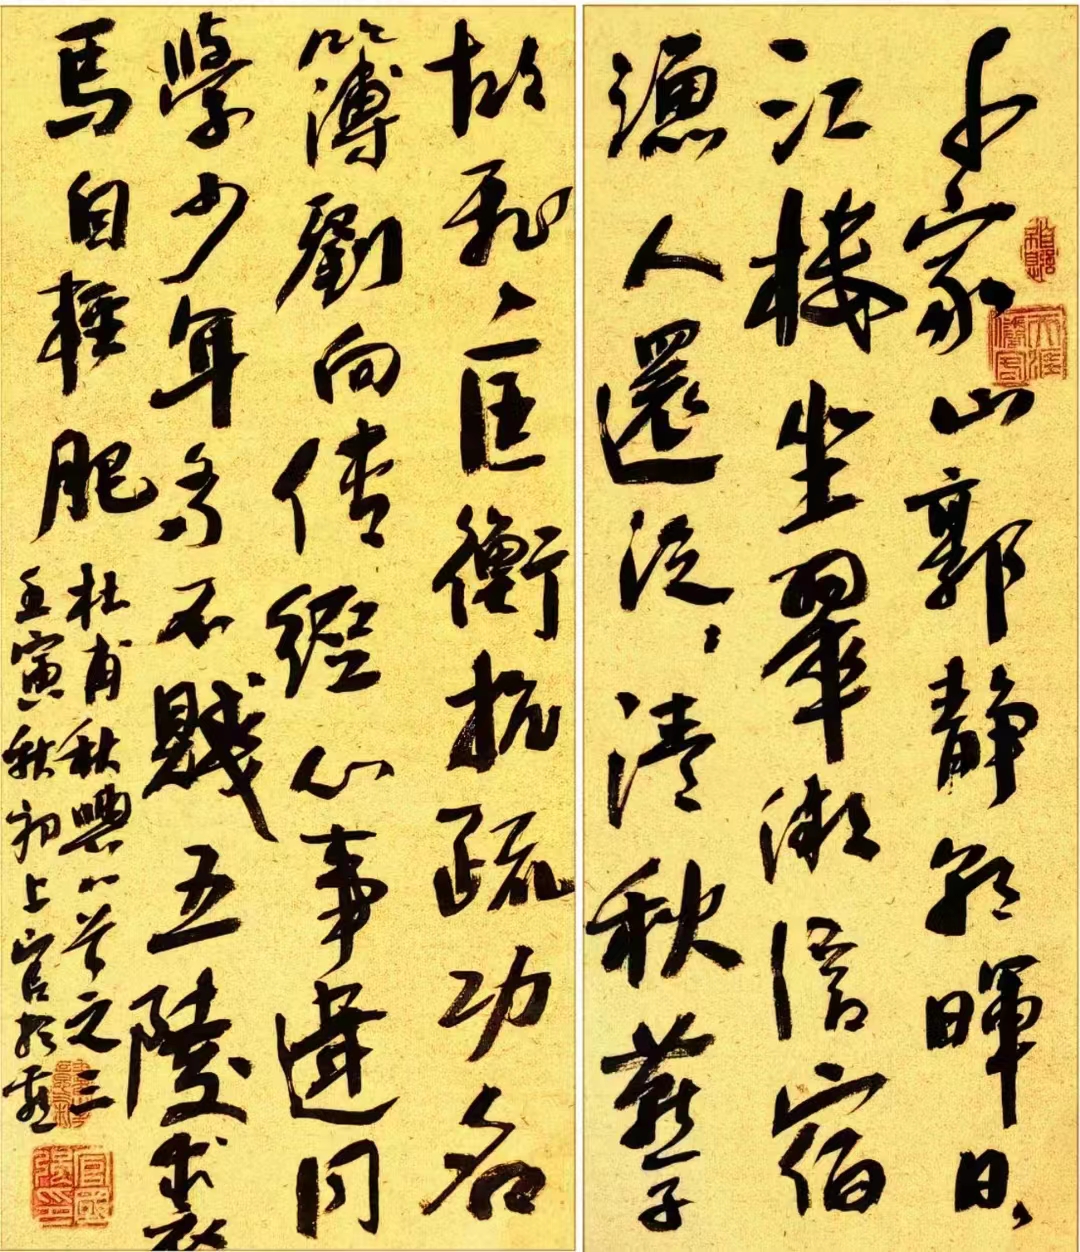 千家山郭靜朝暉日々
江樓坐翠微信宿
漁人還泛々清秋燕子
故飛々匡衡抗疏功名
簿劉向传經心事違同
學少年多不賤五陵裘
馬自輕肥
杜甫秋興八首之三
壬寅秋初上官